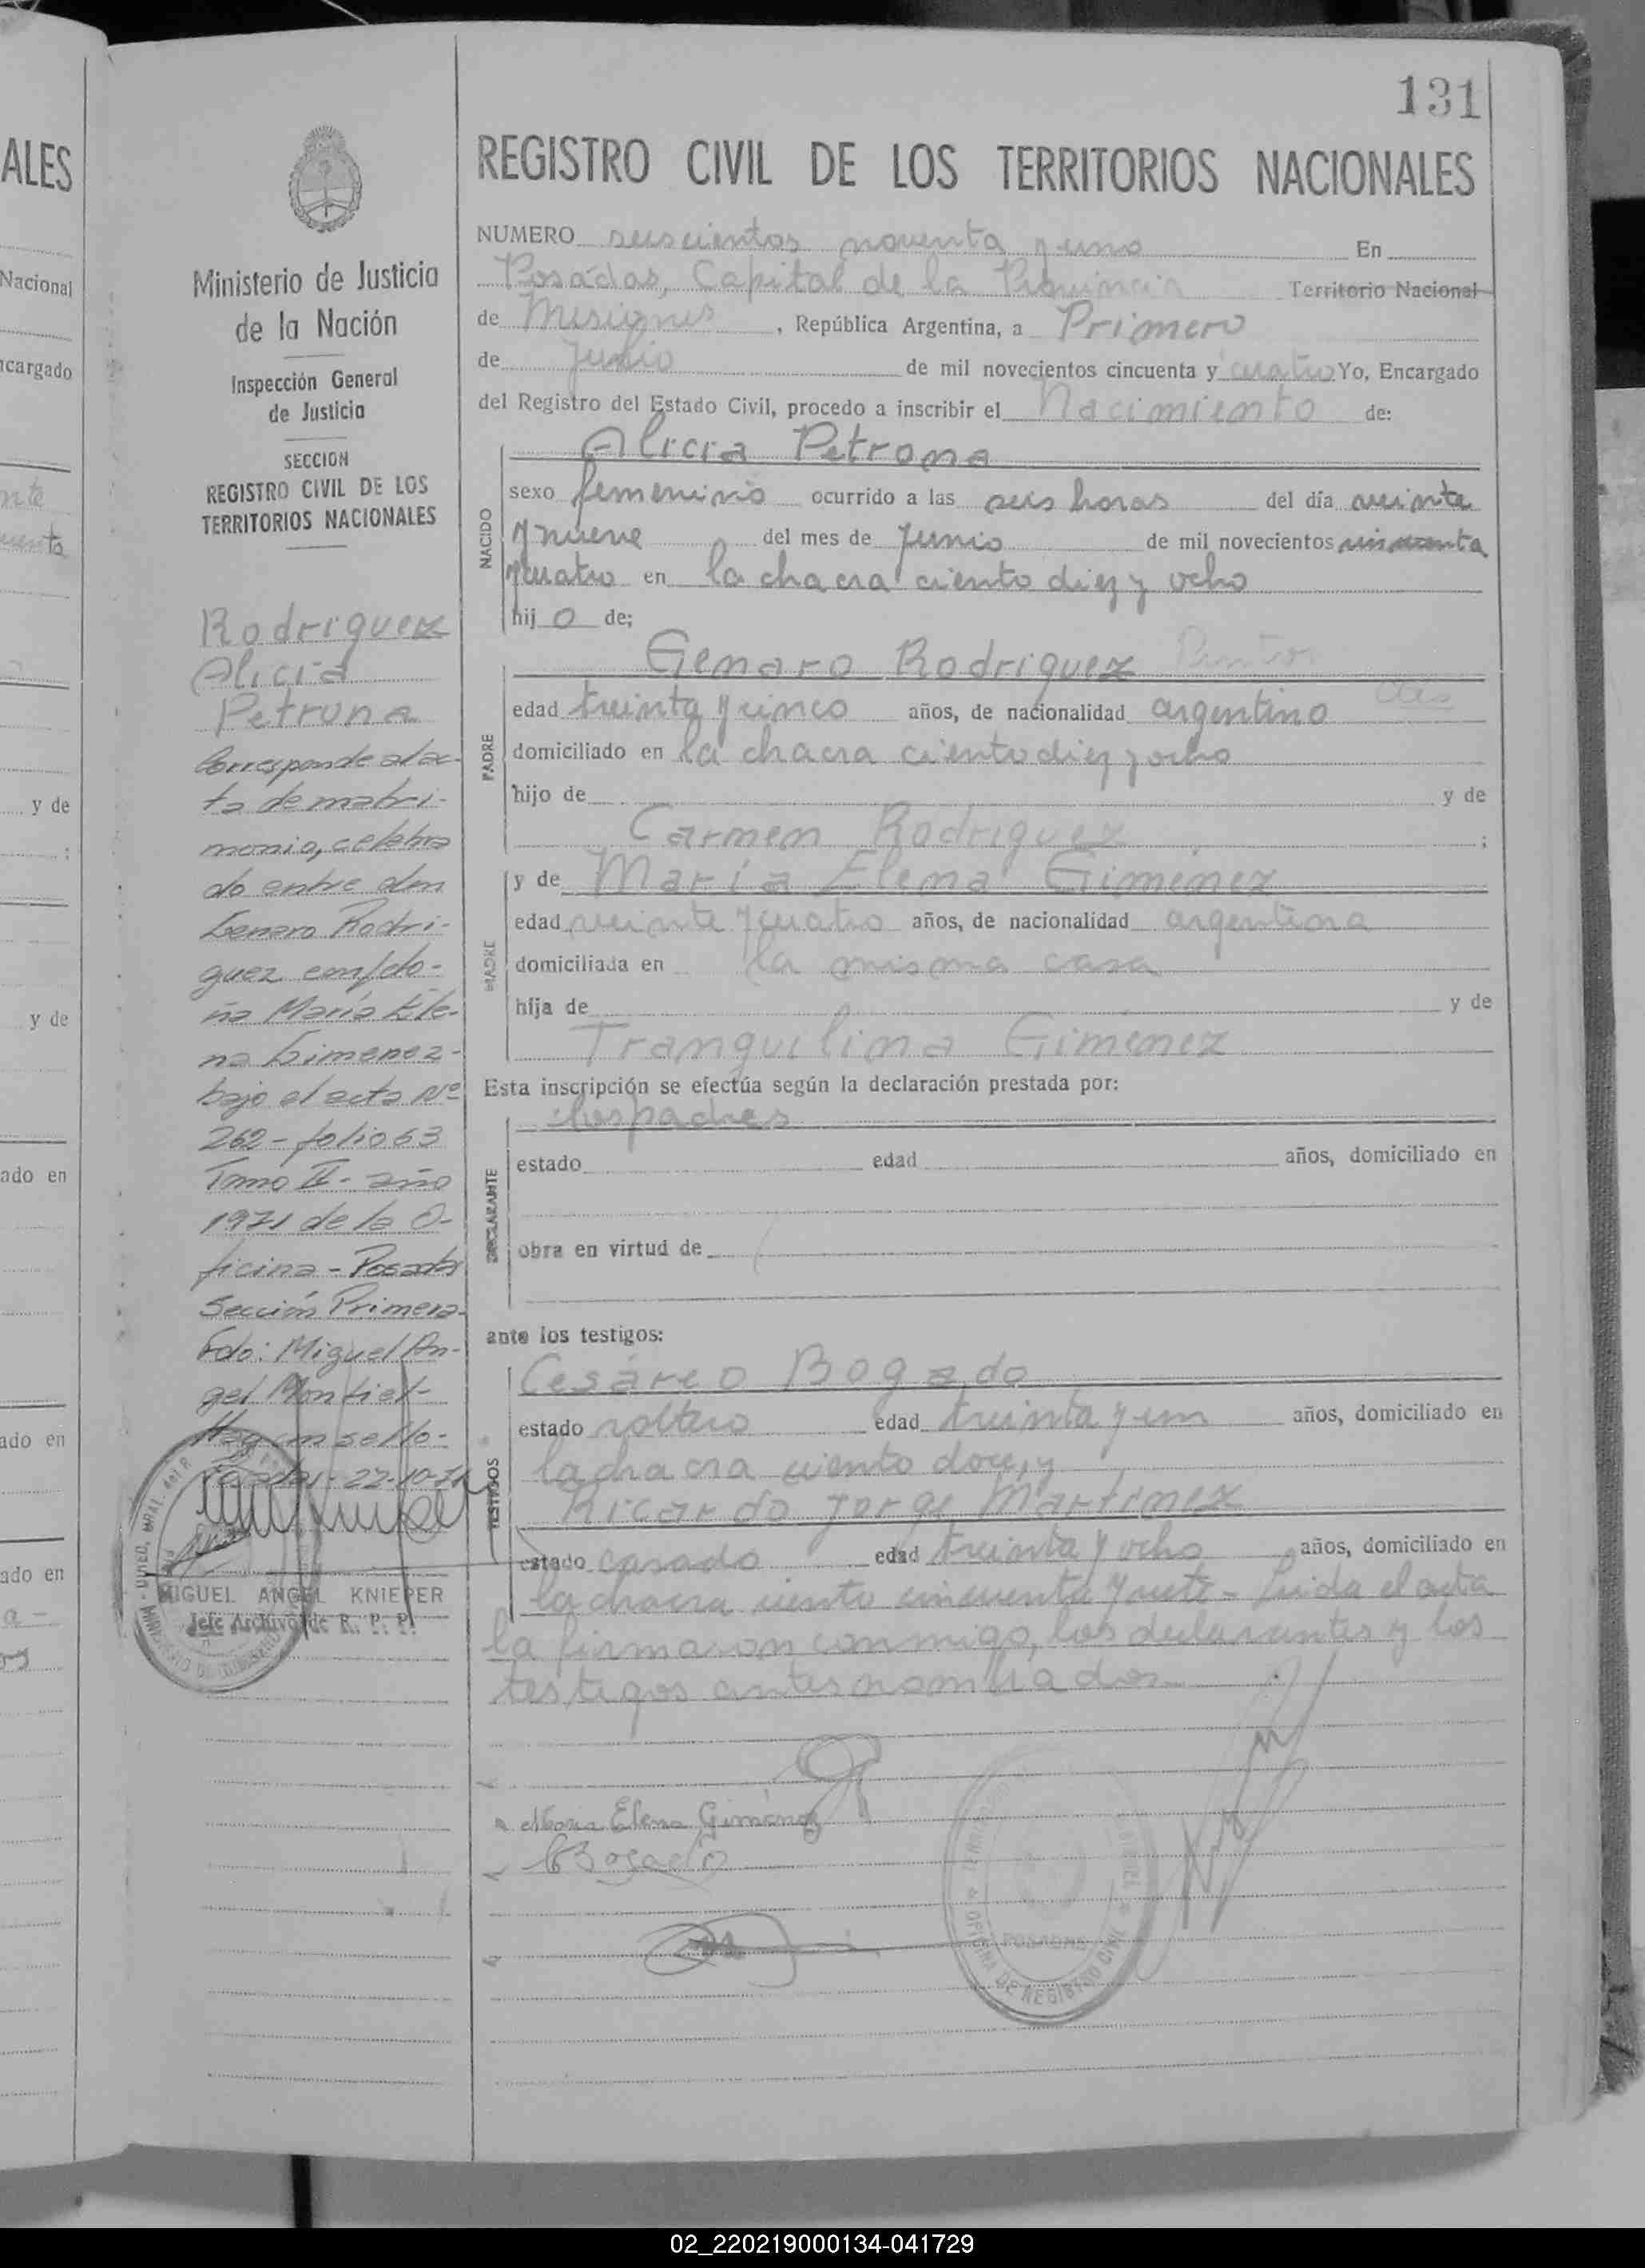 131
ALES
Nacional
cargado
nte
y de
y de
ado en
ado en
ado en
Ministerio de Justicia
de la Nación
Inspección General
de Justicia
SECCION
REGISTRO CIVIL DE LOS
TERRITORIOS NACIONALES
Rodriguez
Alicia
Petrona
Corresponde al ac-
ta de matri-
monio, celebra
do entre don
Genaro Rodri-
guez con/do-
ña María Ele-
na Gimenez-
bajo el acta Nº
262 - folio 63
Tomo II - año
1971 de la O-
ficina - Posadas
Sección Primera
Fdo: Miguel An-
gel Montiel-
Hay un sello-
Posadas - 22-10-71
MIGUEL ANGEL KNIEPER
Jefe Archivo de R. P. P.
REGISTRO CIVIL DE LOS TERRITORIOS NACIONALES
NUMERO seiscientos noventa y uno En
Posadas, Capital de la Provincia Territorio Nacional
de Misiones, República Argentina, a Primero
de Julio de mil novecientos cincuenta y cuatro Yo, Encargado
del Registro del Estado Civil, procedo a inscribir el Nacimiento de:
NACIDO
Alicia Petrona
sexo femenino ocurrido a las seis horas del día veinte
y nueve del mes de Junio de mil novecientos cincuenta
y cuatro en la chacra ciento diez y ocho
hij o de;
PADRE
Genaro Rodriguez
edad treinta y cinco años, de nacionalidad argentino
domiciliado en la chacra ciento diez y ocho
hijo de y de
Carmen Rodriguez ;
MADRE
y de María Elena Giménez
edad veinte y cuatro años, de nacionalidad argentina
domiciliada en la misma casa
hija de y de
Tranquilina Giménez
Esta inscripción se efectúa según la declaración prestada por:
DECLARANTE
los padres
estado edad años, domiciliado en
obra en virtud de
ante los testigos:
TESTIGOS
Cesáreo Bogado
estado soltero edad treinta y un años, domiciliado en
la chacra ciento doce, y
Ricardo Jorge Martínez
estado casado edad treinta y ocho años, domiciliado en
la chacra ciento cincuenta y siete - Leida el acta
la firmaron conmigo, los declarantes y los
testigos antes nombrados.
Maria Elena Giménez
Bogado
POSADAS
OFICINA DE REGISTRO CIVIL
02_220219000134-041729